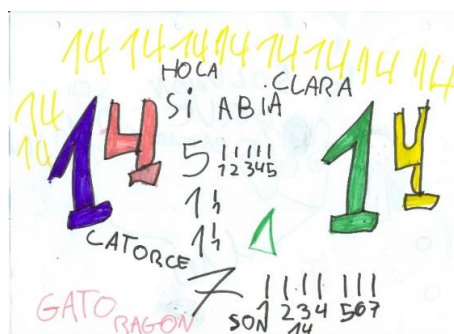 14 14 14 14 14 14 14 14
HOLA
CLARA
SI ABIA
14
14
14 14
5 12345
1
1
1
CATORCE
7 1 2 3 4 5 6 7
SON 14
GATO
RAGON